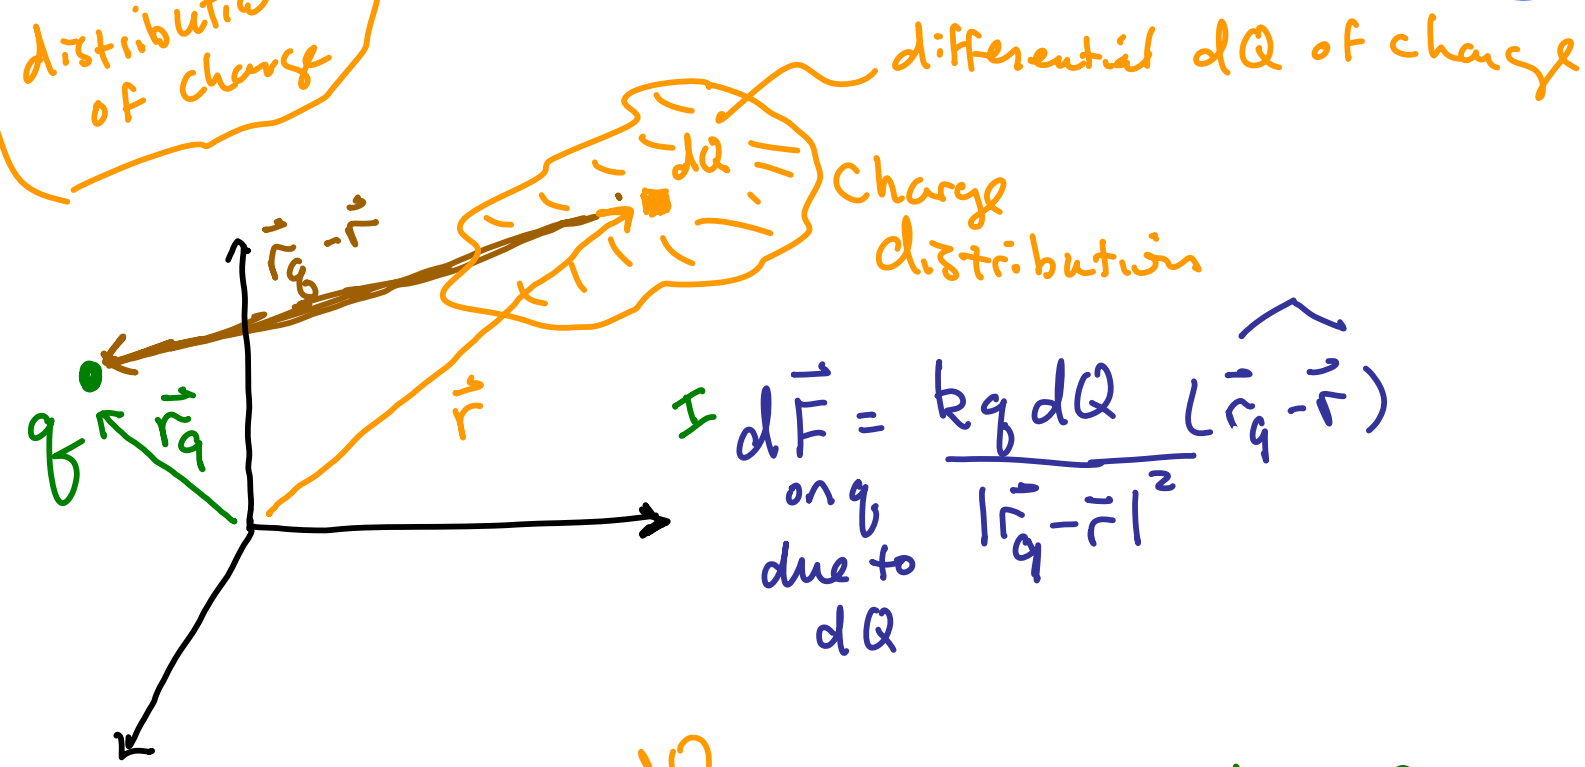 of charge
differential dQ of charge
dQ
Charge
distribution
r⃗q - r⃗
q
r⃗q
r⃗
I dF⃗ = kq dQ / |r⃗q - r⃗|² (r⃗q - r⃗)^
on q
due to
dQ